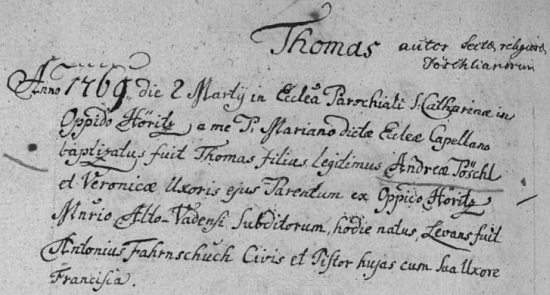 Thomas autor sectæ religiosæ
Töschlianorum
Anno 1769 die 2 Martij in Ecclêa Parochiali S. Catharinæ in
Oppido Höritz a me P. Mariano dictæ Eccleæ Capellano
baptizatus fuit Thomas filius legitimus Andreæ Töschl
et Veronicæ Uxoris ejus Parentum ex Oppido Höritz
Mnrio Alto-Vadensi Subditorum, hodie natus, Levans fuit
Antonius Fahrnschuch Civis et Pistor hujas cum sua Uxore
Francisca.